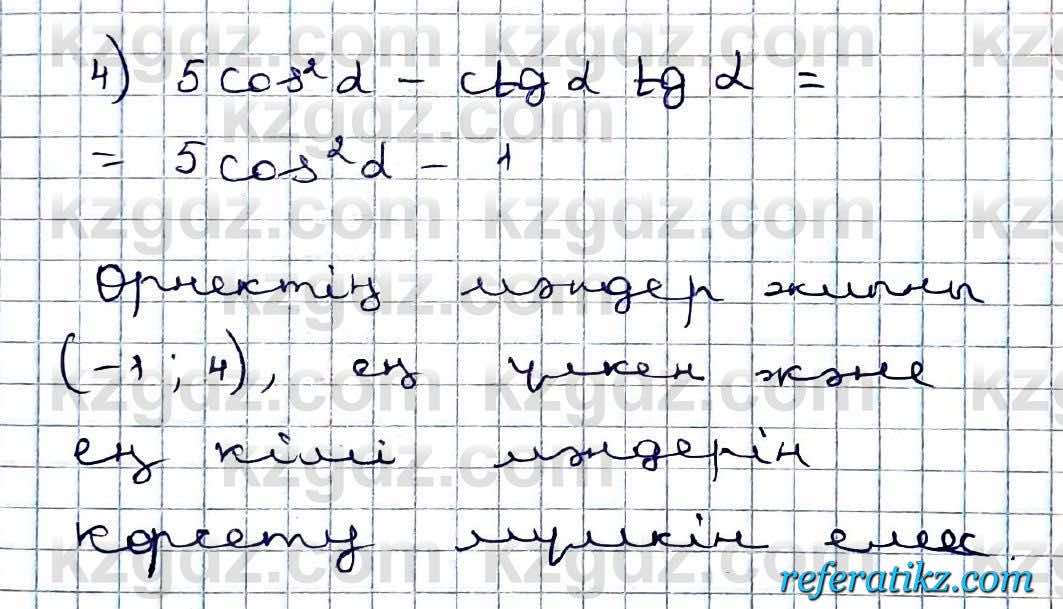 4) 5 cos²α - ctg α tg α =
= 5 cos²α - 1
Өрнектің мәндер жиыны
(-1; 4), ең үлкен және
ең кіші мәндерін
көрсету мүмкін емес.
referatikz.com
kzgdz.com